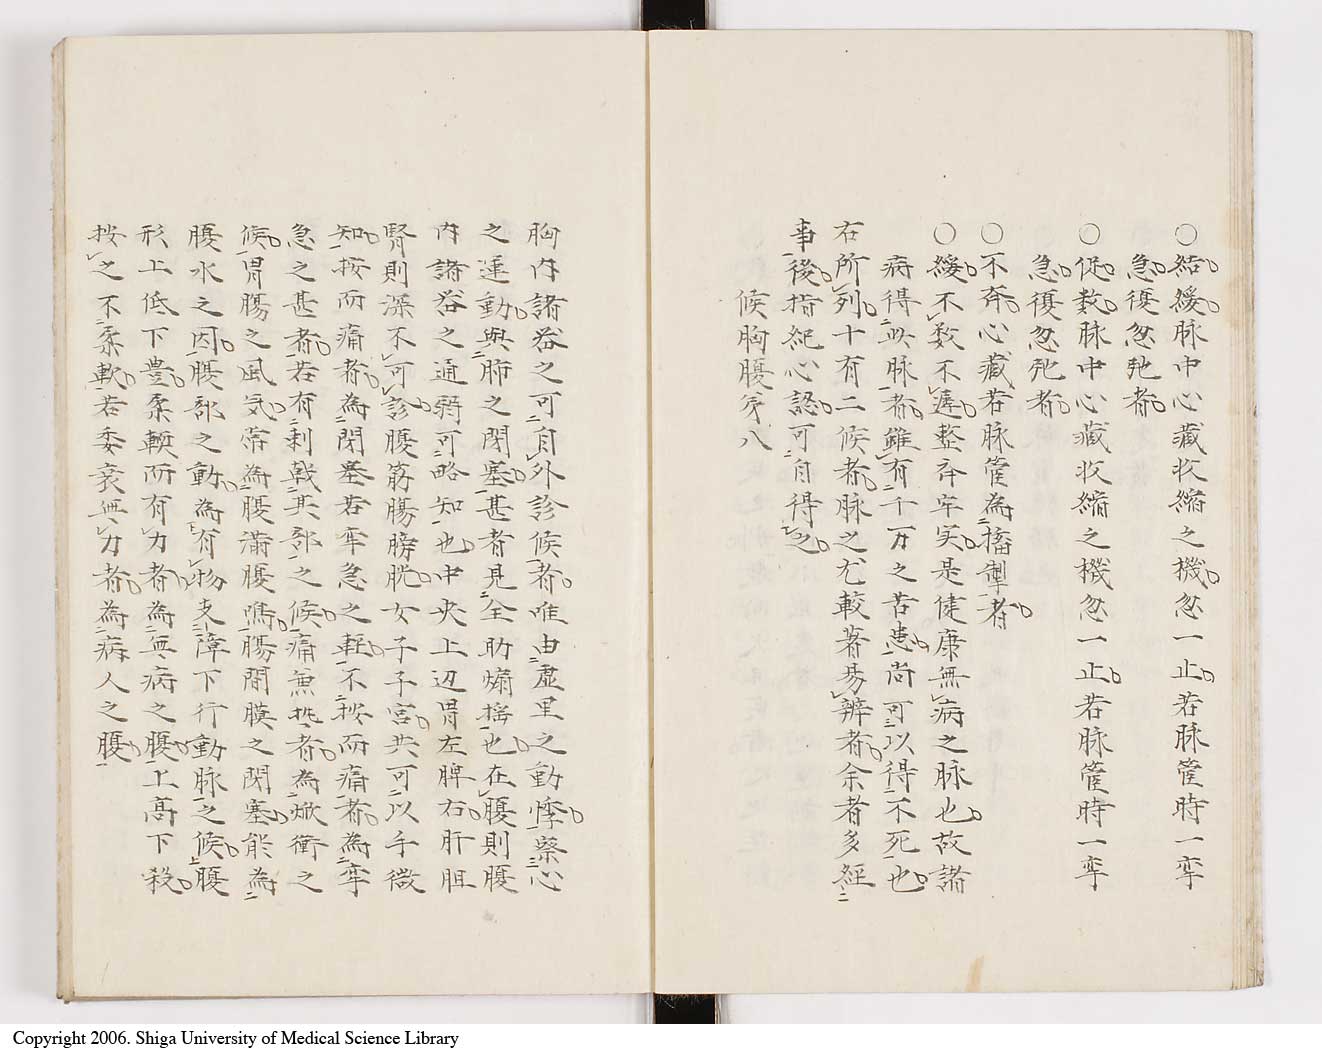 ○結緩脉中心藏收縮之機忽一止若脉管時一牽
急復忽弛者
○促数脉中心藏收縮之機忽一止若脉管時一牽
急復忽弛者
○不斉心藏若脉管為搐掣者
○緩不数不遅整斉牢実是健康無病之脉也故諸
病得此脉者雖有千万之苦患尚可以得不死也
右所列十有二候者脉之尤較著易辨者余者多経
事後指紀心認可自得之
候胸腹第八
胸内諸器之可自外診候者唯由虚里之動悸察心
之運動與肺之閉塞甚者見全肋煽揺也在腹則腹
内諸器之通弱可略知也中央上辺胃左脾右肝胆
腎則深不可診腹筋腸膀胱女子子宮共可以手微
知按而痛者為閉塞若牽急之軽不按而痛者為牽
急之甚者若有刺戟其部之候痛無抂者為焮衝之
候胃腸之風気常為腹満腹鳴腸間膜之閉塞能為
腹水之因腹部之動為有物支障下行動脉之候腹
形上低下豊柔軟而有力者為無病之腹上高下殺
按之不柔軟若委衰無力者為病人之腹
Copyright 2006. Shiga University of Medical Science Library